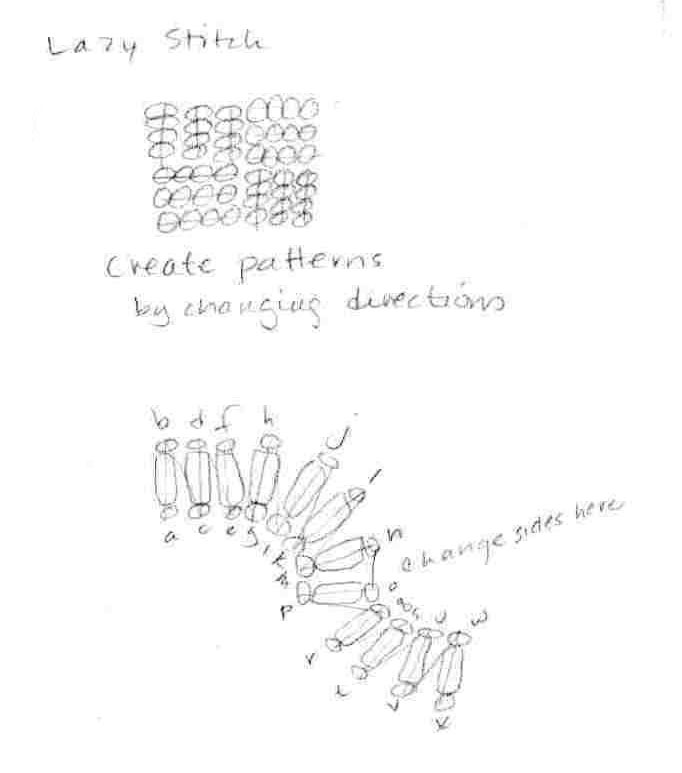 Lazy Stitch
Create patterns
by changing directions
b d f h j l
a c e g i k
n
change sides here
m
o
p
q s u w
r
t
v
x